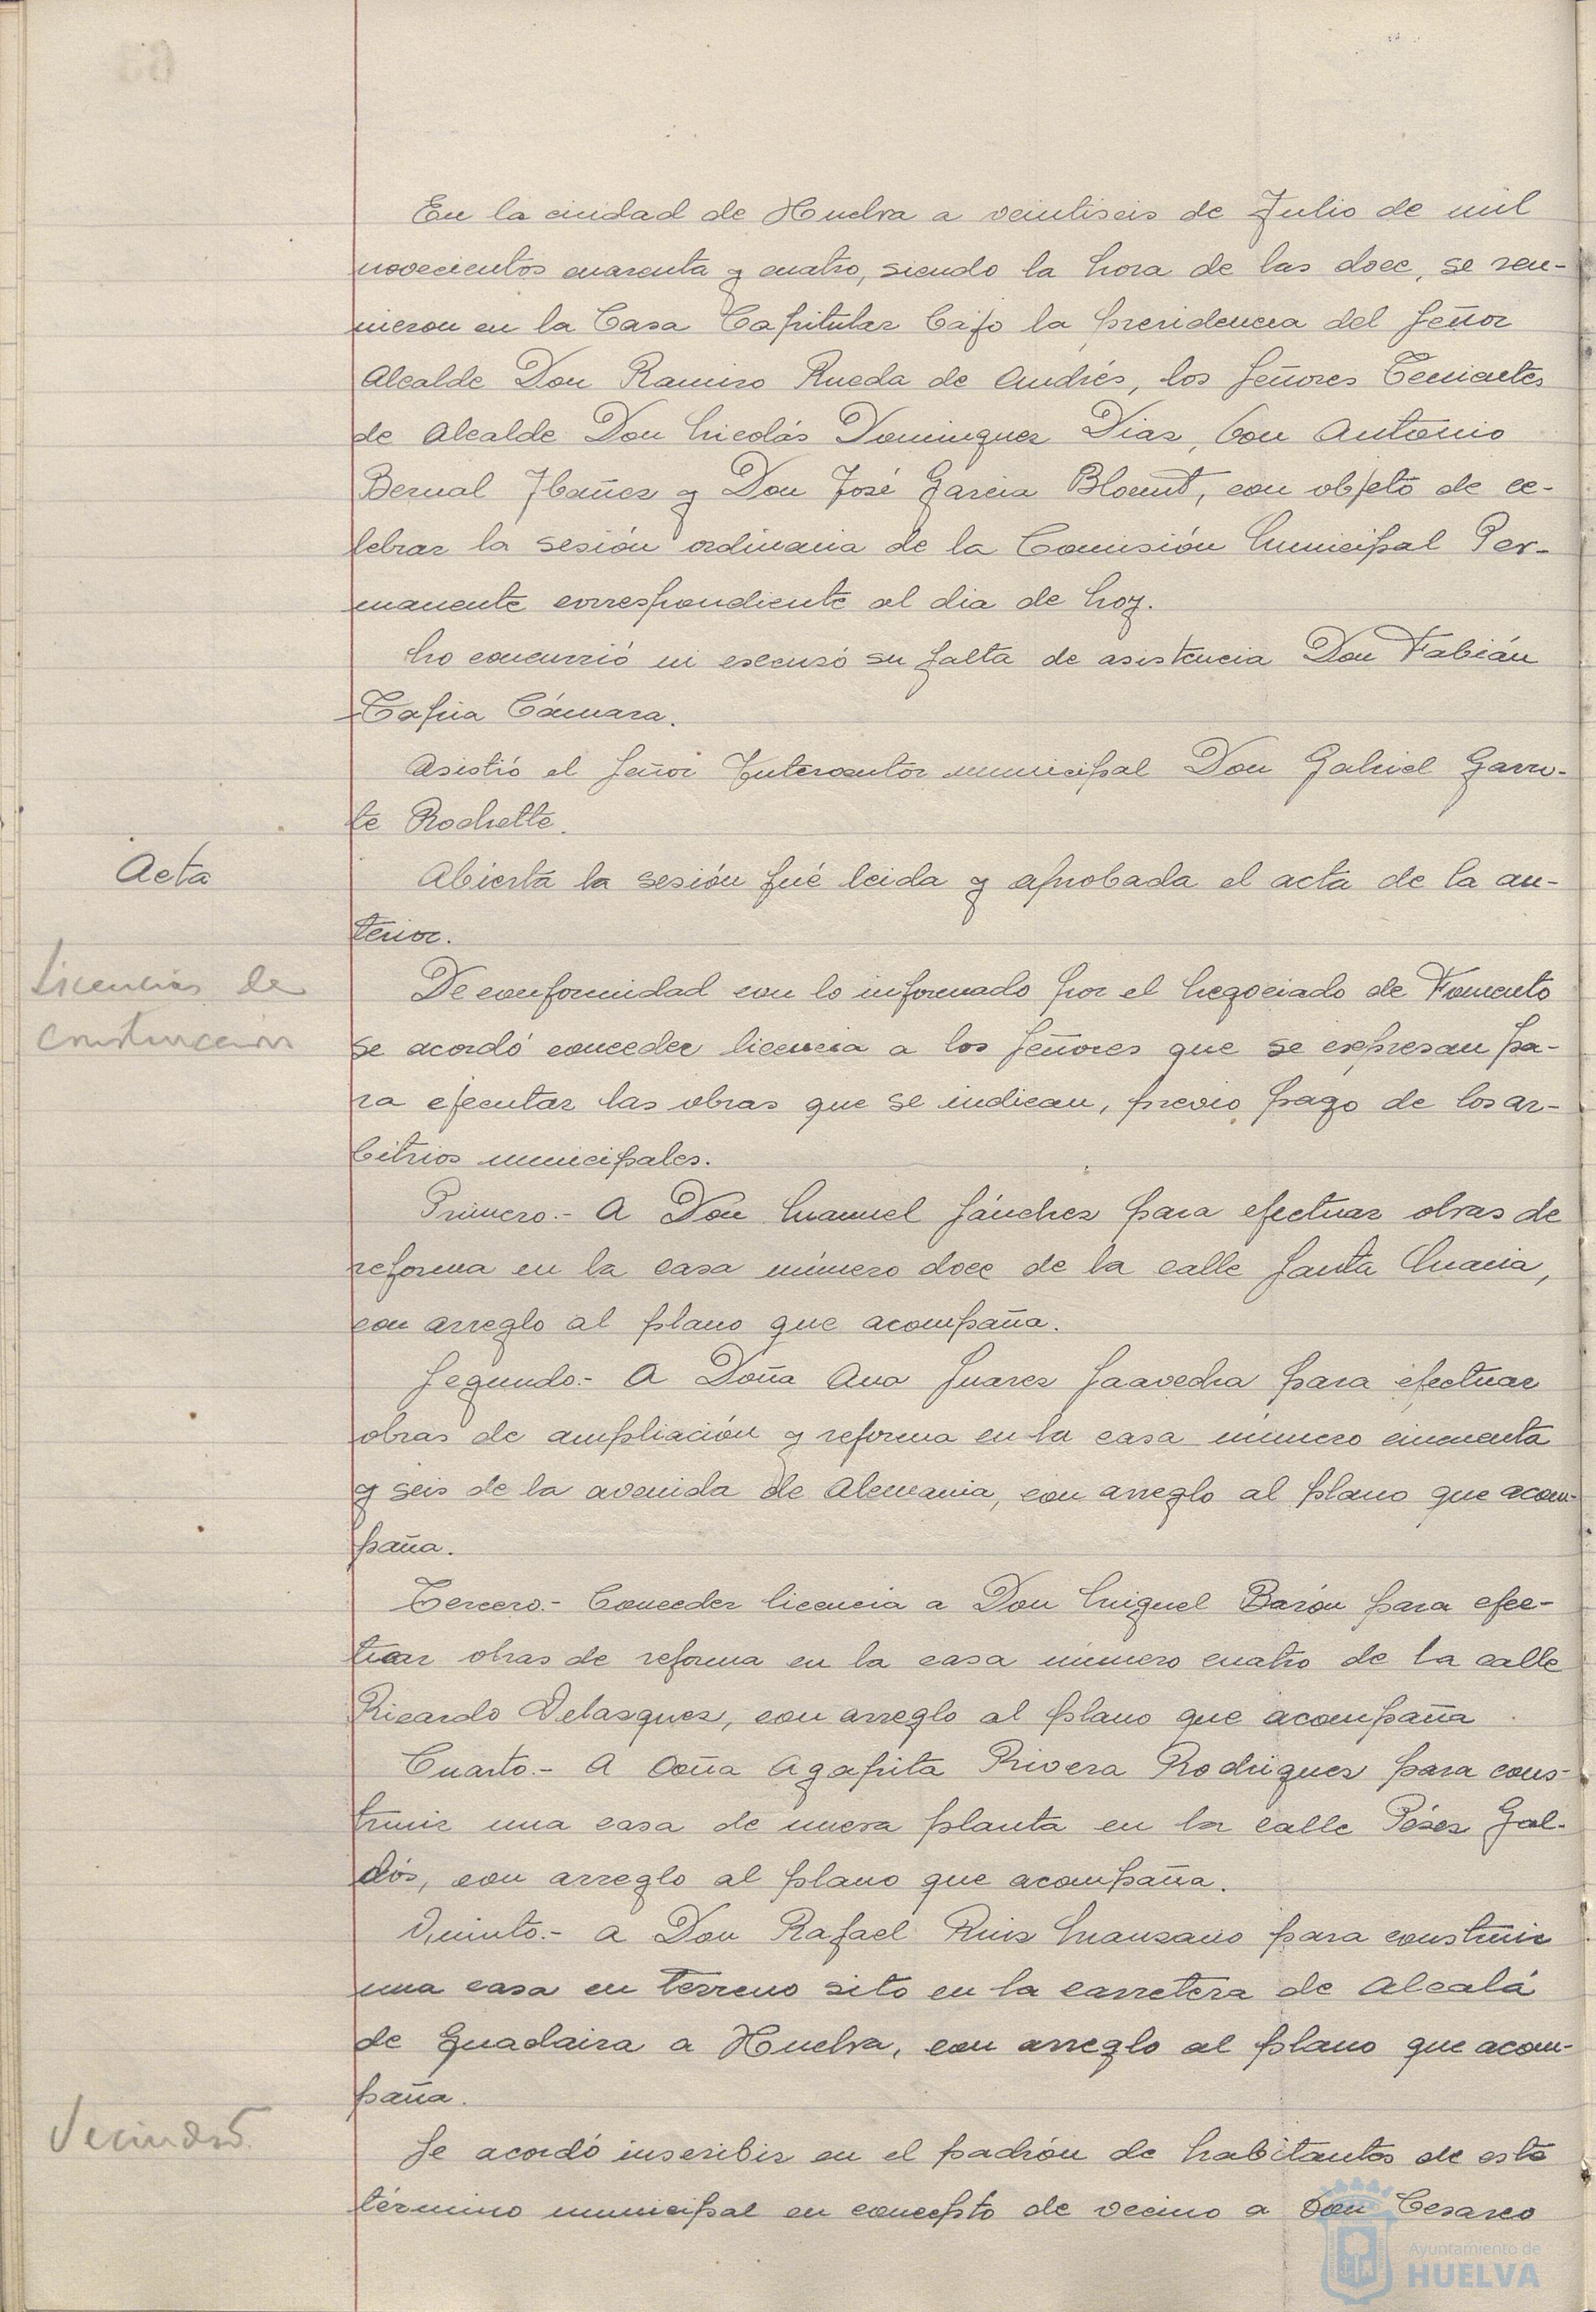 En la ciudad de Huelva a veintiseis de Julio de mil
novecientos cuarenta y cuatro, siendo la hora de las doce, se reu-
nieron en la Casa Capitular bajo la presidencia del Señor
Alcalde Don Ramiro Rueda de Andrés, los Señores Tenientes
de Alcalde Don Nicolás Dominguez Diaz, Don Antonio
Bernal Ibañez y Don José Garcia Blount, con objeto de ce-
lebrar la sesión ordinaria de la Comisión Municipal Per-
manente correspondiente al dia de hoy.
No concurrió ni escusó su falta de asistencia Don Fabián
Tapia Cámara.
Asistió el Señor Interventor municipal Don Gabriel Garro-
te Rochette.
Acta
Abierta la sesión fué leida y aprobada el acta de la an-
terior.
Licencias de
construccion
De conformidad con lo informado por el Negociado de Fomento
se acordó conceder licencia a los Señores que se expresan pa-
ra ejecutar las obras que se indican, previo pago de los ar-
bitrios municipales.
Primero.- A Don Manuel Sánchez para efectuar obras de
reforma en la casa número doce de la calle Santa Maria,
con arreglo al plano que acompaña.
Segundo.- A Doña Ana Suarez Saavedra para efectuar
obras de ampliación y reforma en la casa número cincuenta
y seis de la avenida de Alemania, con arreglo al plano que acom-
paña.
Tercero.- Conceder licencia a Don Miguel Barón para efec-
tuar obras de reforma en la casa número cuatro de la calle
Ricardo Velazquez, con arreglo al plano que acompaña
Cuarto.- A Doña Agapita Rivera Rodriguez para cons-
truir una casa de nueva planta en la calle Pérez Gal-
dós, con arreglo al plano que acompaña.
Quinto.- A Don Rafael Ruiz Manzano para construir
una casa en terreno sito en la carretera de Alcalá
de Guadaira a Huelva, con arreglo al plano que acom-
paña.
Vecindad.
Se acordó inscribir en el padrón de habitantes de este
término municipal en concepto de vecino a Don Cesareo
Ayuntamiento de
HUELVA